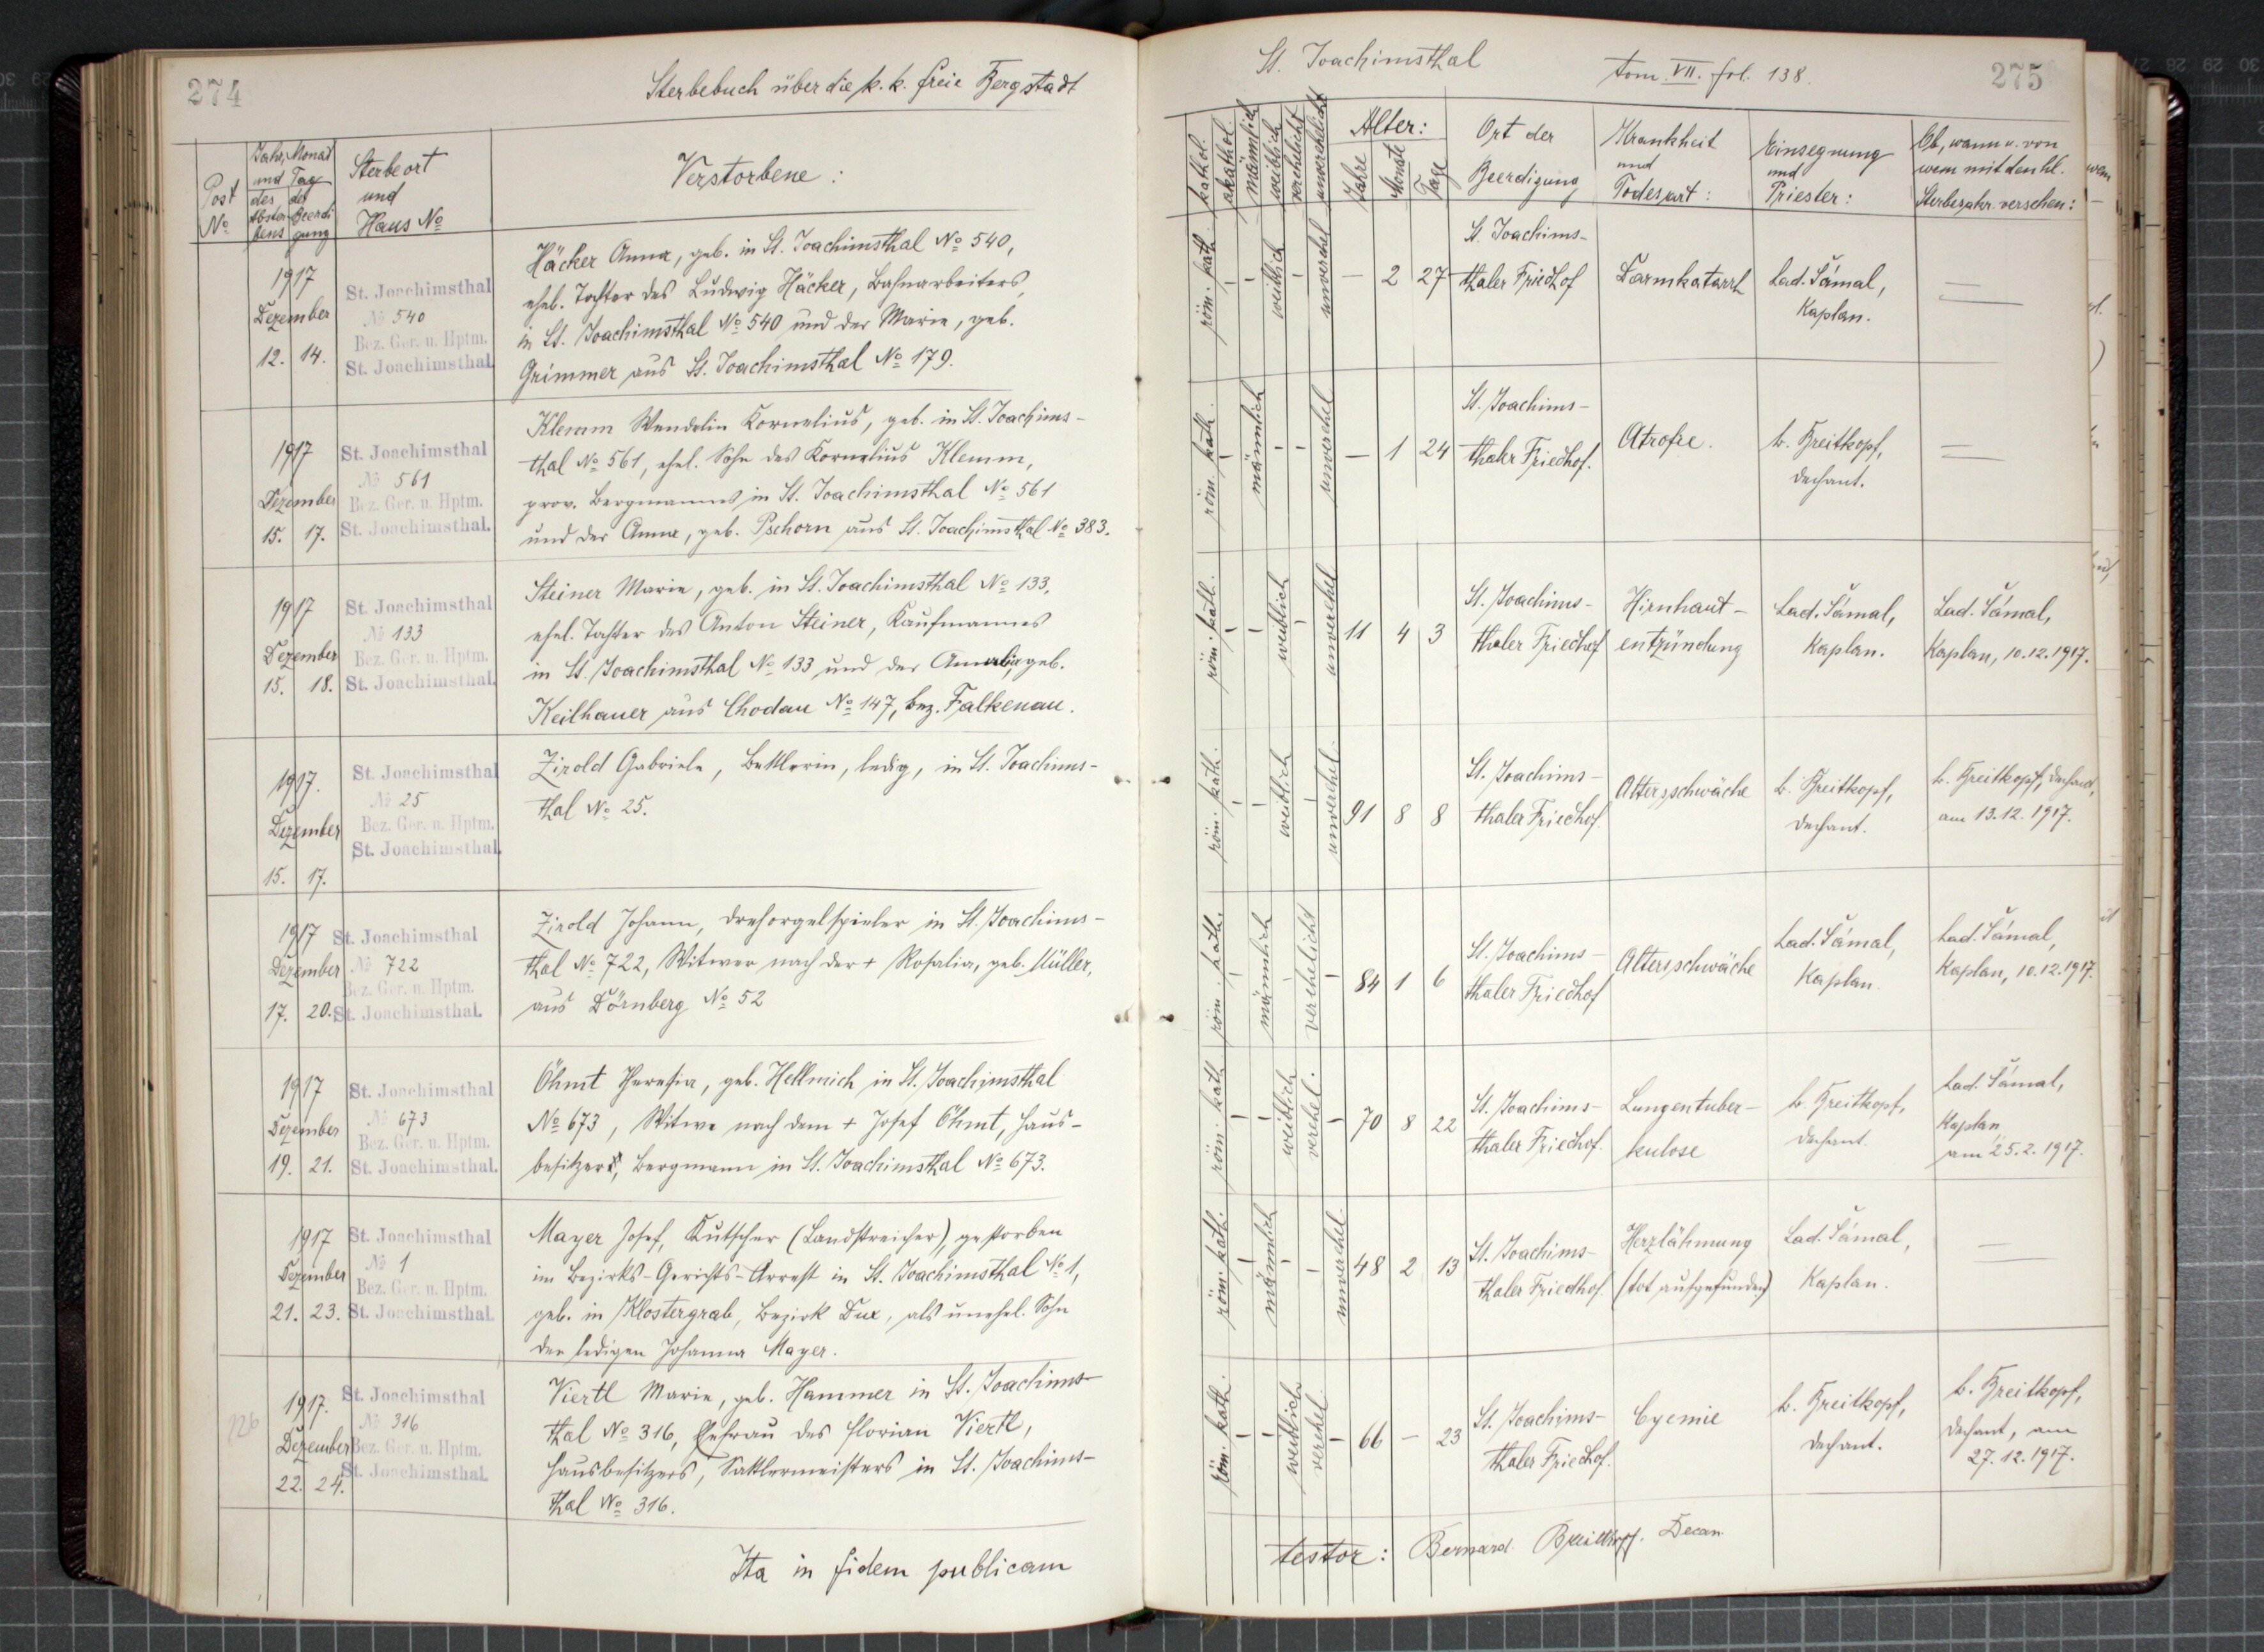 274
Sterbebuch über die k. k. freie Bergstadt
Post No
Jahr, Monat und Tag
des Absterbens
der Beerdigung
Sterbeort und Haus No
Verstorbene:
1917 Dezember 12. 14.
St. Joachimsthal
No 540
Bez. Ger. u. Hptm.
St. Joachimsthal.
Häcker Anna, geb. in St. Joachimsthal No 540,
ehel. Tochter des Ludwig Häcker, Bahnarbeiters,
in St. Joachimsthal No 540 und der Marie, geb.
Grimmer aus St. Joachimsthal No 179.
1917 Dezember 15. 17.
St. Joachimsthal
No 561
Bez. Ger. u. Hptm.
St. Joachimsthal.
Klemm Wendelin Kornelius, geb. in St. Joachims-
thal No 561, ehel. Sohn des Kornelius Klemm,
prov. Bergmannes in St. Joachimsthal No 561
und der Anna, geb. Pschorn aus St. Joachimsthal No 383.
1917 Dezember 15. 18.
St. Joachimsthal
No 133
Bez. Ger. u. Hptm.
St. Joachimsthal.
Steiner Marie, geb. in St. Joachimsthal No 133,
ehel. Tochter des Anton Steiner, Kaufmannes
in St. Joachimsthal No 133 und der geb.
Keilhauer aus Chodau No 147, bez. Falkenau.
1917. Dezember 15. 17.
St. Joachimsthal
No 25
Bez. Ger. u. Hptm.
St. Joachimsthal.
Zirold Gabriele, Bettlerin, ledig, in St. Joachims-
thal No 25.
1917 Dezember 17. 20.
St. Joachimsthal
No 722
Bez. Ger. u. Hptm.
St. Joachimsthal.
Zirold Johann, Drehorgelspieler in St. Joachims-
thal No 722, Witwer nach der + Rosalia, geb. Müller,
aus Dörnberg No 52
1917 Dezember 19. 21.
St. Joachimsthal
No 673
Bez. Ger. u. Hptm.
St. Joachimsthal.
Öhmt Theresia, geb. Hellmich in St. Joachimsthal
No 673, Witwe nach dem + Josef Öhmt, Haus-
besitzer, Bergmann in St. Joachimsthal No 673.
1917 Dezember 21. 23.
St. Joachimsthal
No 1
Bez. Ger. u. Hptm.
St. Joachimsthal.
Mayer Josef, Kutscher (Landstreicher), gestorben
im Bezirks-Gerichts-Arrest in St. Joachimsthal No 1,
geb. in Klostergrab, Bezirk Dux, als unehel. Sohn
der ledigen Johanna Mayer.
126
1917. Dezember 22. 24.
St. Joachimsthal
No 316
Bez. Ger. u. Hptm.
St. Joachimsthal.
Viertl Marie, geb. Hammer in St. Joachims-
thal No 316, Ehefrau des Florian Viertl,
Hausbesitzers, Sattlermeisters in St. Joachims-
thal No 316.
Ita in fidem publicam
St. Joachimsthal
tom. VII. fol. 138.
275
kathol.
akathol.
männlich
weiblich
verehelicht
unverehelicht
Alter:
Jahre
Monate
Tage
Ort der Beerdigung
Krankheit und Todesart:
Einsegnung und Priester:
Ob, wann u. von
wem mit den hl.
Sterbesakr. versehen:
röm. kath. - - weiblich - unverehel
— 2 27
St. Joachims-
thaler Friedhof
Darmkatarrh
Lad. Šámal,
Kaplan.
röm. kath. - männlich - - unverehel
— 1 24
St. Joachims-
thaler Friedhof.
Atrofie.
b. Breitkopf,
Dechant.
röm. kath. - - weiblich - unverehel
11 4 3
St. Joachims-
thaler Friedhof
Hirnhaut-
entzündung
Lad. Šámal,
Kaplan.
Lad. Šámal,
Kaplan, 10.12.1917.
röm. kath. - - weiblich - unverehel.
91 8 8
St. Joachims-
thaler Friedhof.
Altersschwäche
b. Breitkopf,
Dechant.
b. Breitkopf, Dechant,
am 13.12.1917.
röm. kath. - männlich - verehelicht -
84 1 6
St. Joachims-
thaler Friedhof
Altersschwäche
Lad. Šámal,
Kaplan.
Lad. Šámal,
Kaplan, 10.12.1917.
röm. kath - - weiblich verehel. -
70 8 22
St. Joachims-
thaler Friedhof.
Lungentuber-
kulose
b. Breitkopf,
Dechant.
Lad. Šámal,
Kaplan
am 25.2.1917.
röm. kath. - männlich - - unverehel.
48 2 13
St. Joachims-
thaler Friedhof.
Herzlähmung
(tot aufgefunden)
Lad. Šámal,
Kaplan.
röm. kath. - - weiblich verehel. -
66 — 23
St. Joachims-
thaler Friedhof.
b. Breitkopf,
Dechant.
b. Breitkopf,
Dechant, am
27.12.1917.
testor: Bernard Breitkopf. Decan